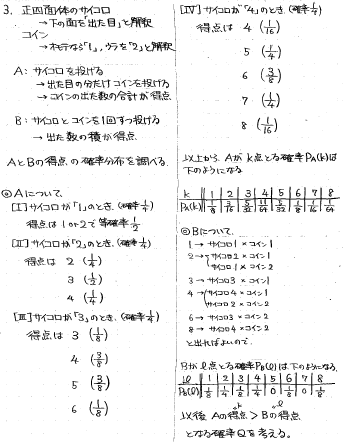 3. 正四面体のサイコロ
→下の面を出た目」と解釈
コイン
→オモテなら「1」, ウラを「2」と解釈
A: サイコロを投げる
→出た目の分だけコインを投げる
→コインの出た数の合計が得点
B: サイコロとコインを1回ずつ投げる
→出た数の積が得点
AとBの得点の確率分布を調べる.
◎Aについて.
[I]サイコロが「1」のとき. (確率1/4)
得点は 1 or 2で等確率1/2
[II]サイコロが「2」のとき. (確率1/4)
得点は 2 (1/4)
3 (1/2)
4 (1/4)
[III]サイコロが「3」のとき. (確率1/4)
得点は 3 (1/8)
4 (3/8)
5 (3/8)
6 (1/8)
[IV]サイコロが「4」のとき. (確率1/4)
得点は 4 (1/16)
5 (1/4)
6 (3/8)
7 (1/4)
8 (1/16)
以上から. Aがk点とる確率PA(k)は
下のようになる
k | 1 | 2 | 3 | 4 | 5 | 6 | 7 | 8
PA(k) | 1/8 | 3/16 | 5/32 | 11/64 | 5/32 | 1/8 | 1/16 | 1/64
◎Bについて.
1 → サイコロ1 × コイン1
2 → サイコロ2 × コイン1
サイコロ1 × コイン2
3 → サイコロ3 × コイン1
4 → サイコロ4 × コイン1
サイコロ2 × コイン2
6 → サイコロ3 × コイン2
8 → サイコロ4 × コイン2
と出ればよいので.
Bがl点とる確率PB(l)は下のようになる.
l | 1 | 2 | 3 | 4 | 5 | 6 | 7 | 8
PB(l) | 1/8 | 1/4 | 1/8 | 1/4 | 0 | 1/8 | 0 | 1/8
以後 Aの得点 > Bの得点
となる確率Qを考える.